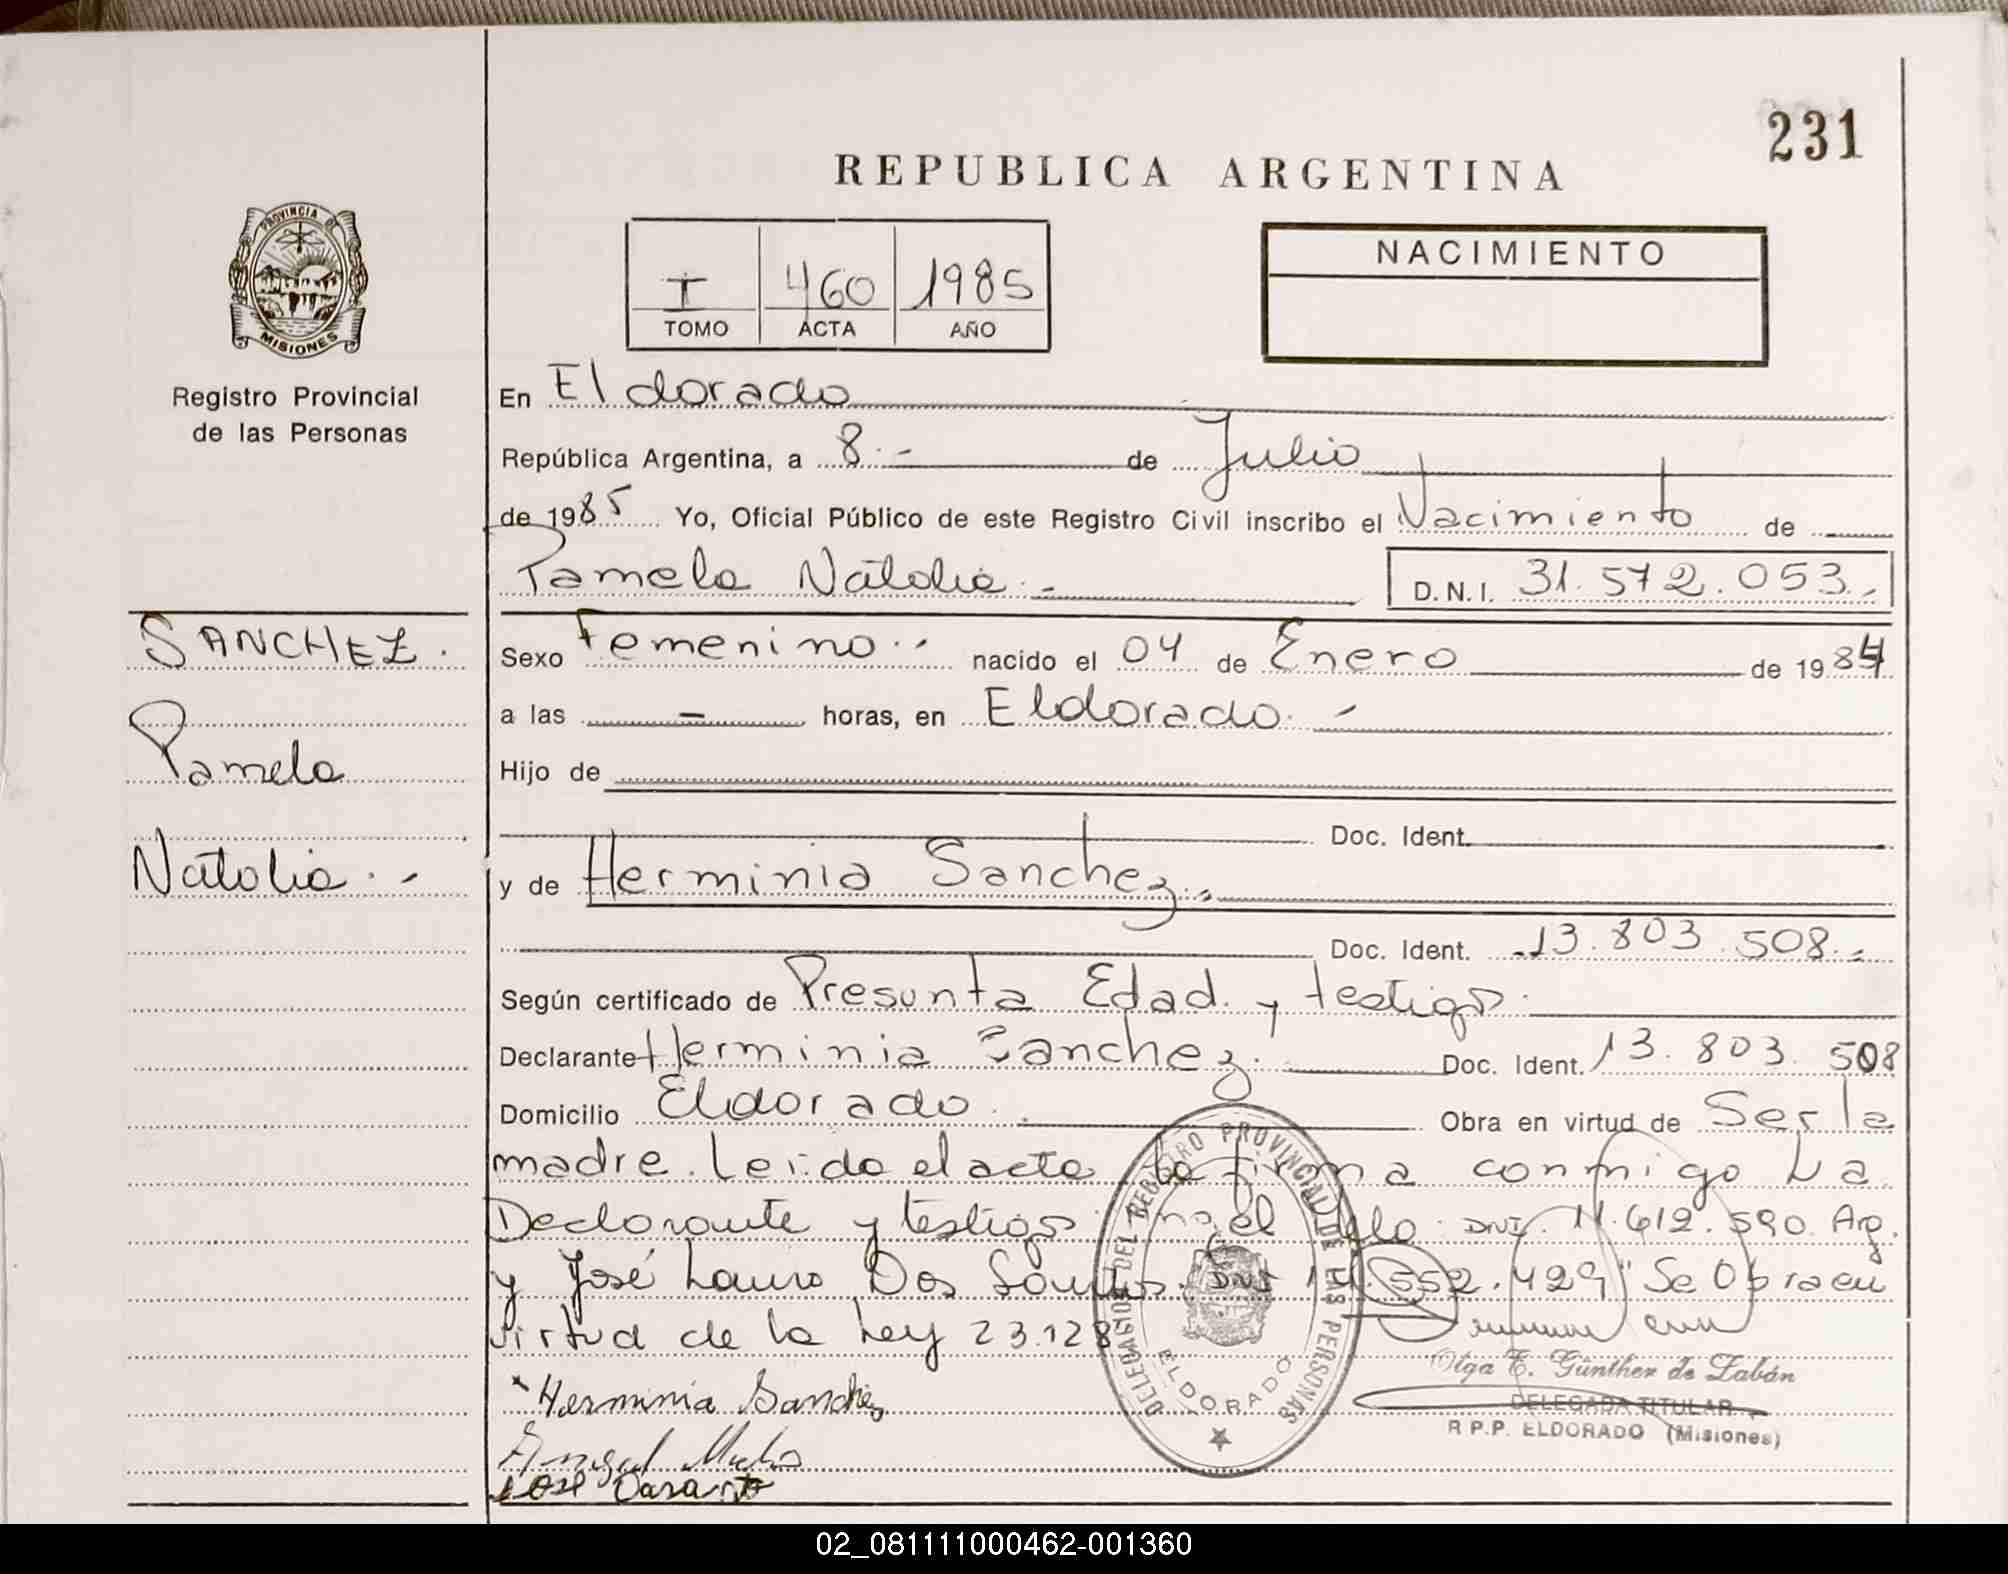 231
REPUBLICA ARGENTINA
PROVINCIA DE
MISIONES
Registro Provincial
de las Personas
I 460 1985
TOMO ACTA AÑO
NACIMIENTO
En Eldorado
República Argentina, a 8.- de Julio
de 1985 Yo, Oficial Público de este Registro Civil inscribo el Nacimiento de
Pamela Natalia.- D.N.I. 31.572.053.-
SANCHEZ.
Pamela
Natalia.-
Sexo Femenino.- nacido el 04 de Enero de 1984
a las - horas, en Eldorado.-
Hijo de
Doc. Ident.
y de Herminia Sanchez.-
Doc. Ident. 13.803.508.-
Según certificado de Presunta Edad y testigos.
Declarante Herminia Sanchez. Doc. Ident. 13.803.508
Domicilio Eldorado. Obra en virtud de Ser la
madre. Leida el acta la firma conmigo La
Declarante y testigos DNI. 11.612.590 Arg.
y José Lauro Dos Santos. DNI 552.429 "Se Obra en
virtud de la Ley 23.128
DELEGACION DEL REGISTRO PROVINCIAL DE LAS PERSONAS
ELDORADO
Herminia Sanchez
Olga E. Günther de Zabán
DELEGADA TITULAR
R.P.P. ELDORADO (Misiones)
José
02_081111000462-001360